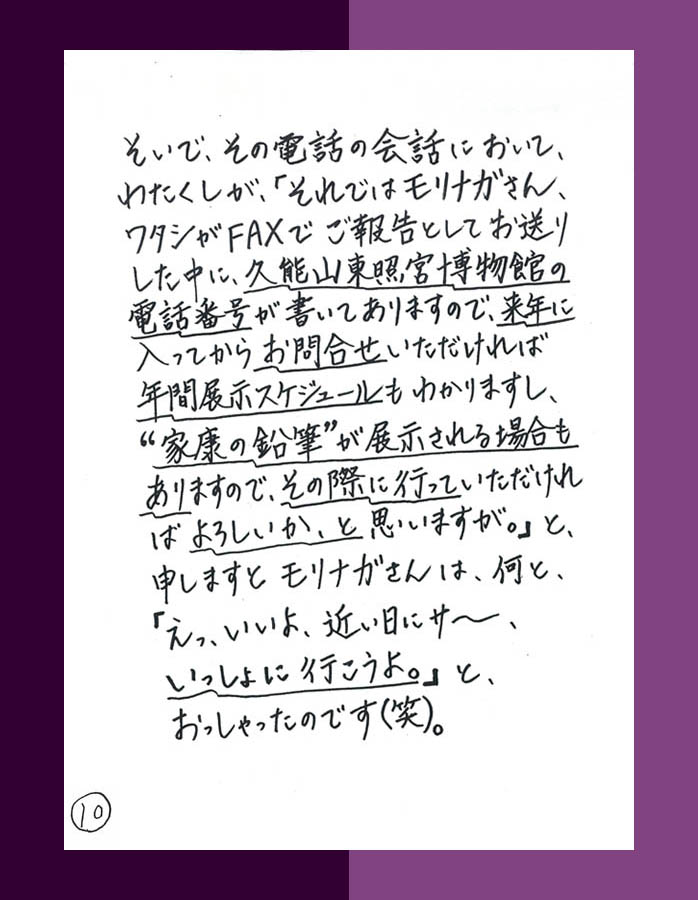 そいで、その電話の会話において、
わたくしが、「それではモリナガさん、
ワタシがFAXでご報告としてお送り
した中に、久能山東照宮博物館の
電話番号が書いてありますので、来年に
入ってからお問合せいただければ
年間展示スケジュールもわかりますし、
“家康の鉛筆”が展示される場合も
ありますので、その際に行っていただけれ
ばよろしいか、と思いますが。」と、
申しますとモリナガさんは、何と、
「えっ、いいよ、近い日にサ〜、
いっしょに行こうよ。」と、
おっしゃったのです(笑)。
10